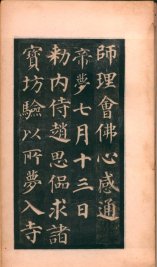 師理會佛心感通
帝夢七月十三日
勑內侍趙思偘求諸
寳坊驗以所夢入寺